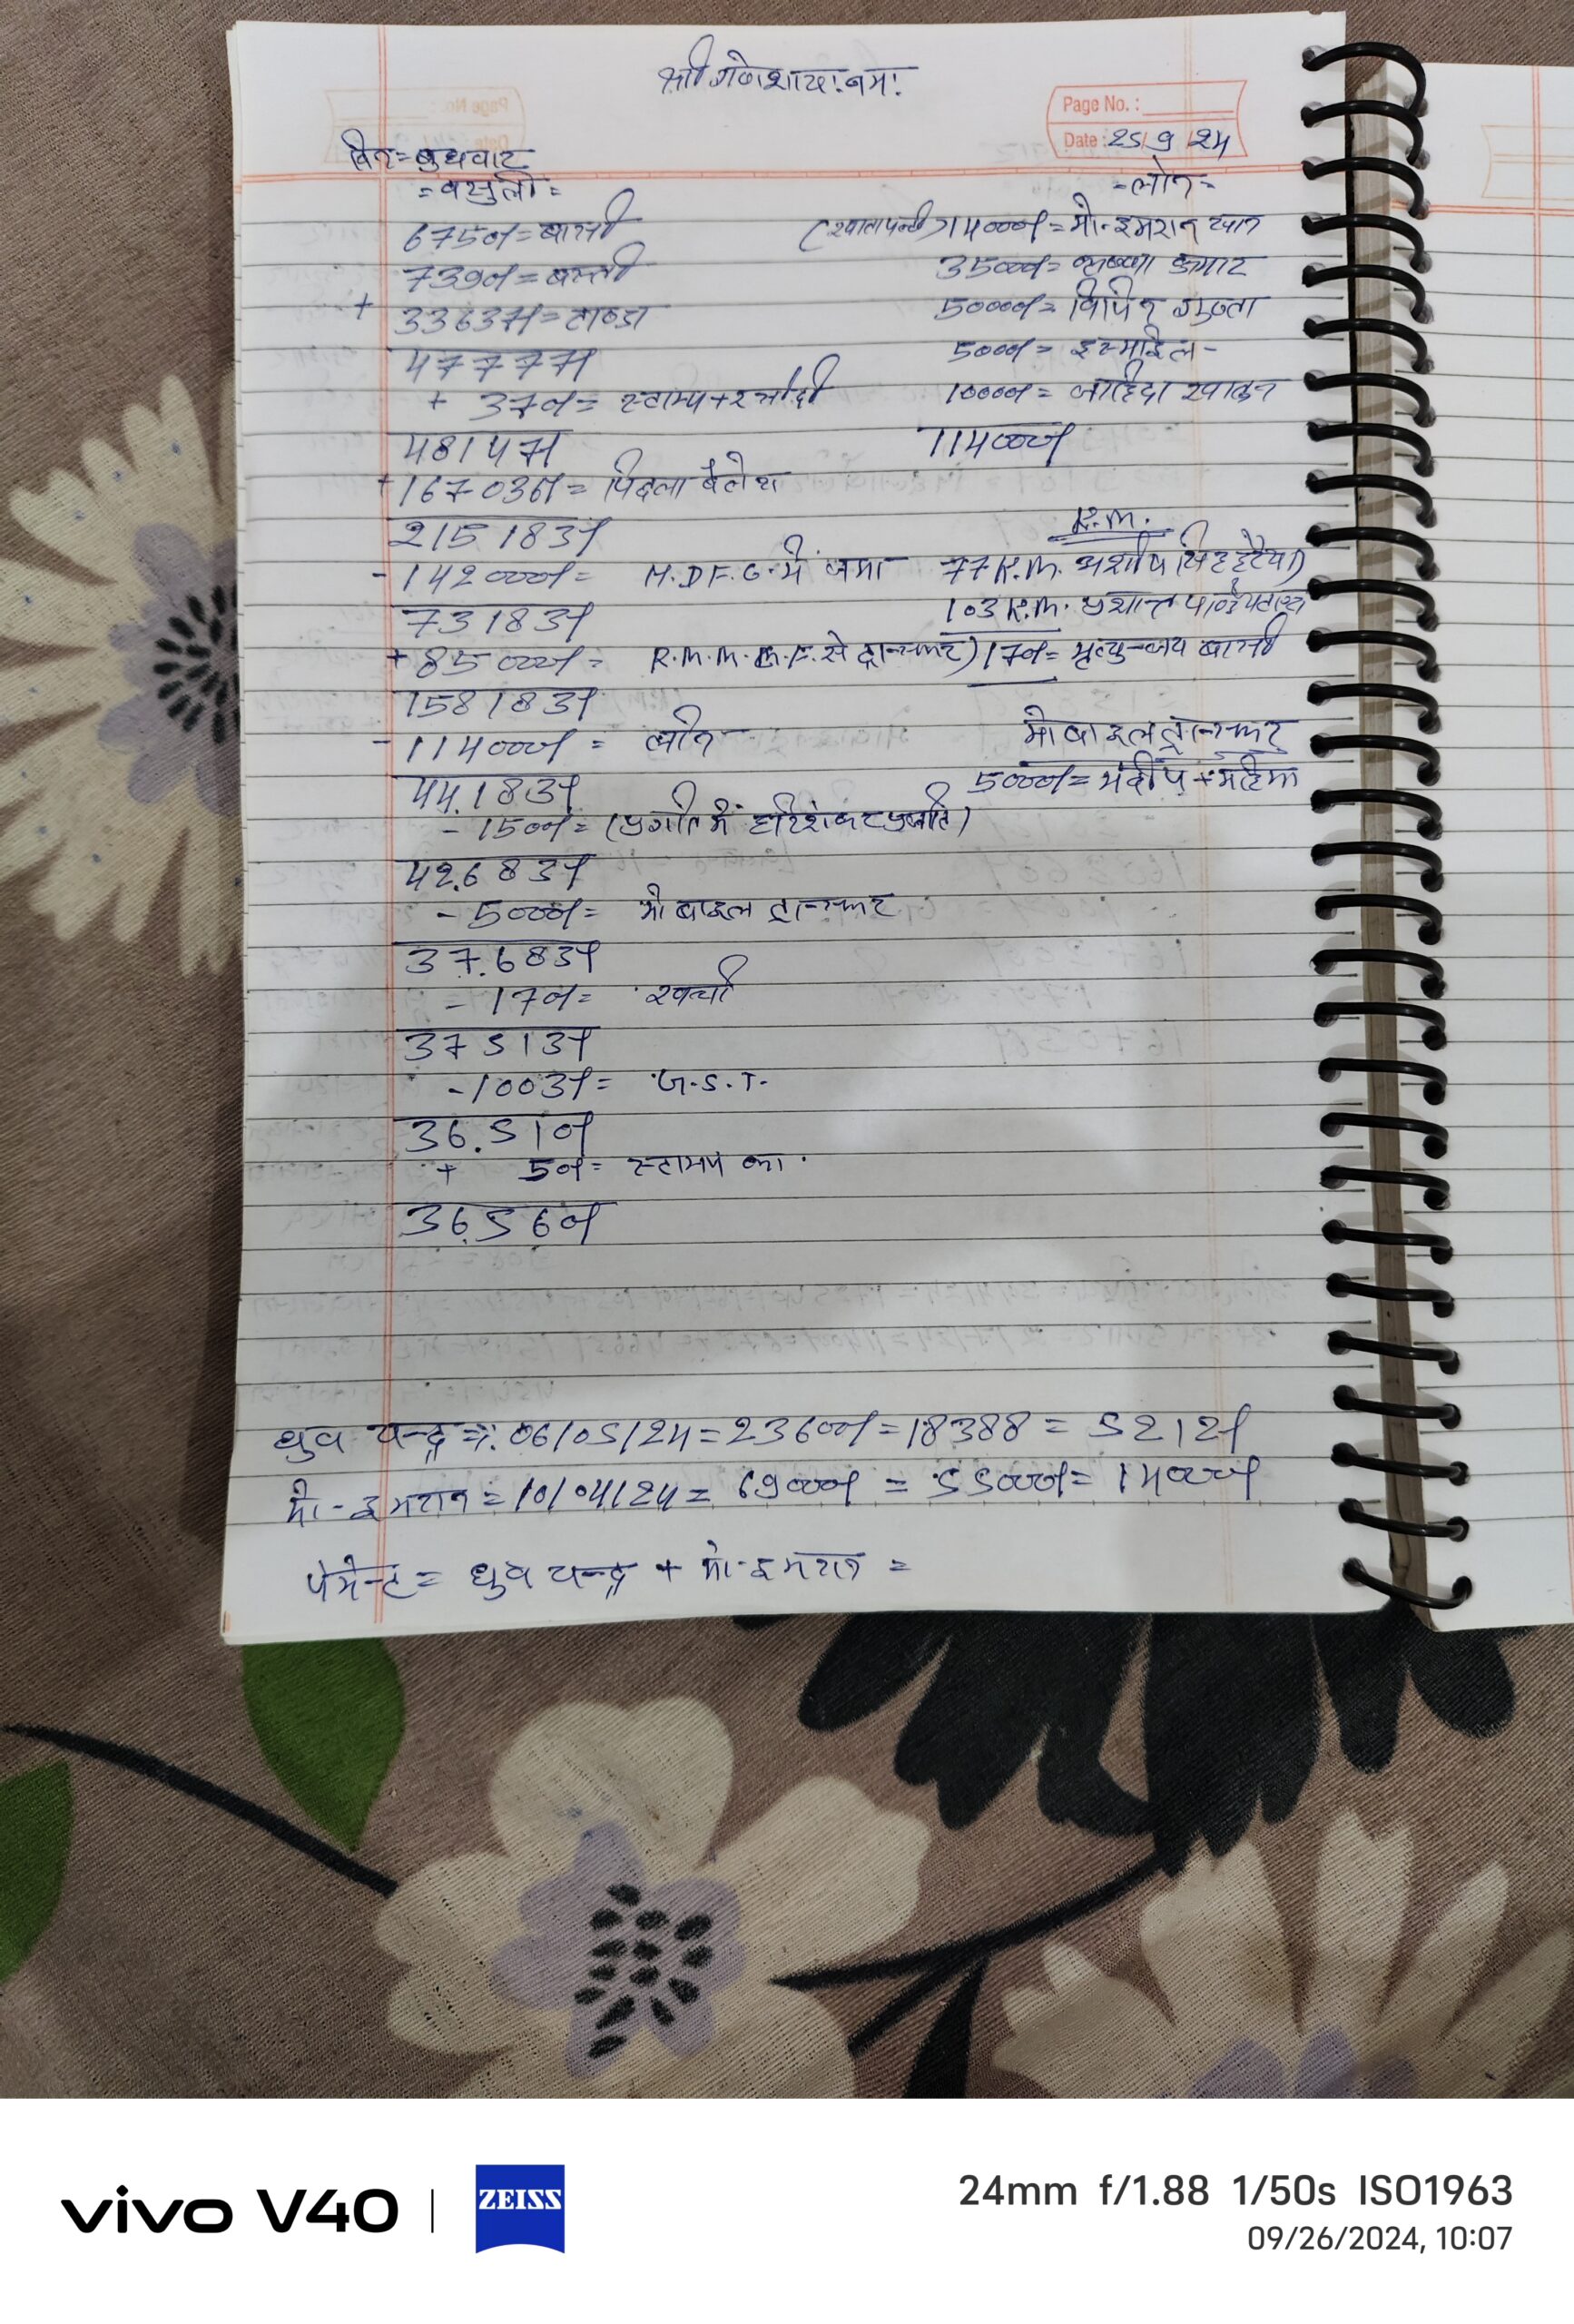 श्री गणेशाय: नम:
Page No. :
Date : 25/9/24
दिन = बुधवार
= वसुली =
= लोन =
6750/- = बासी
7390/- = बस्ती
+ 33637/- = टाण्डा
47777/-
+ 370/- = स्टाम्प +
48147/-
+ 167036/- = पिछला बैलेंश
215183/-
- 142000/- = H.D.F.C. में जमा
73183/-
+ 85000/- = R.M.M.M.F. से ट्रान्सफर)
158183/-
- 114000/- = लोन
44.183/-
- 1500/- = (प्रगति में हरिशंकर प्रजापति)
42.683/-
- 5000/- = मोबाइल ट्रान्सफर
37.683/-
- 170/- = खर्चा
37513/-
- 1003/- = G.S.T.
36.510/-
+ 50/- = स्टाम्प का
36.560/-
(खातापल्टी) 14000/- = मो. इमरान खान
35000/- = कृष्णा कुमार
50000/- = विपिन गुप्ता
5000/- = इस्माईल -
10000/- = जाहिदा खातून
114000/-
R.M.
77 R.M. हटैया)
103 R.M. प्रशान्त पाण्डेय
170/- = मृत्युन्जय बासी
मोबाइल ट्रान्सफर
5000/- = संदीप + महिमा
ध्रुव चन्द्र =: 06/05/24 = 23600/- = 18388 = 5212/-
मो. इमरान = 10/04/24 = 69000/- = 55000/- = 14000/-
पेमेन्ट = ध्रुव चन्द्र + मो. इमरान =
vivo V40 | ZEISS
24mm f/1.88 1/50s ISO1963
09/26/2024, 10:07